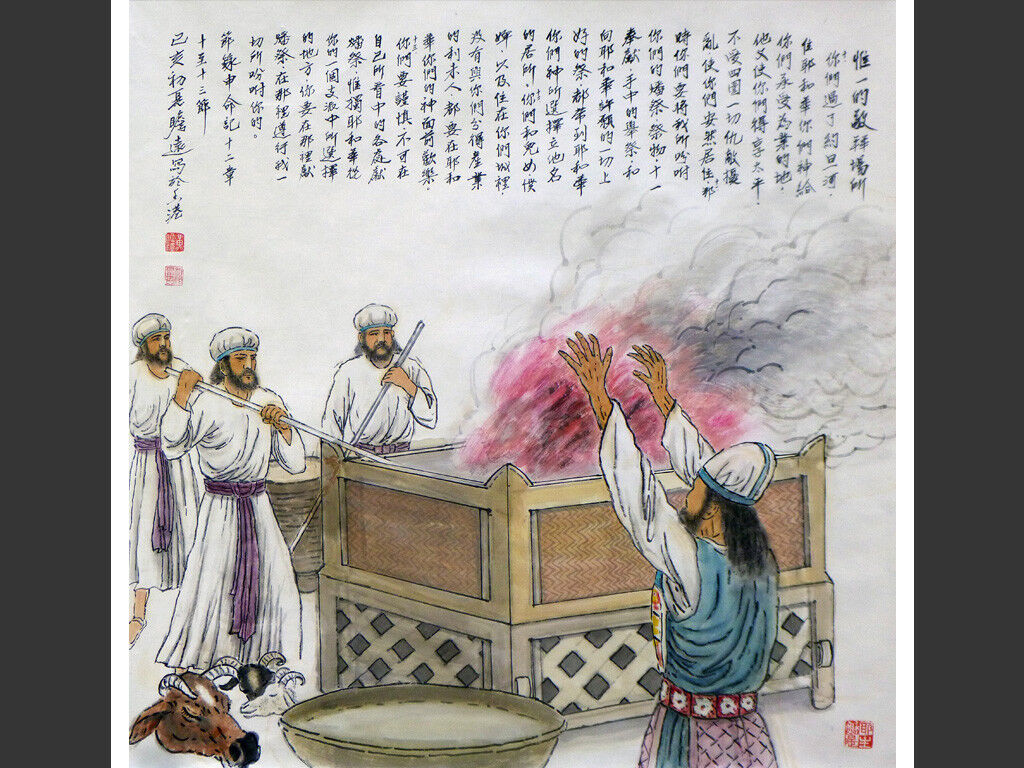 惟一的敬拜場所
十你們過了約旦河，
住耶和華你們神給
你們承受為業的地，
他又使你們得享太平，
不受四圍一切仇敵擾
亂使你們安然居住。十一那
時你們要將我所吩咐
你們的燔祭、祭物、十一
奉獻、手中的舉祭、和
向耶和華許願的一切上
好的祭都帶到耶和華
你們神所選擇立他名
的居所。十二你們和兒女僕
婢、以及住在你們城裡，
沒有與你們分得產業
的利未人都要在耶和
華你們的神面前歡樂。
十三你們要謹慎、不可在
自己所看中的各處獻
燔祭，惟獨耶和華從
你的一個支派中所選擇
的地方你要在那裡獻
燔祭、在那裡遵行我一
切所吩咐你的。
節錄申命記十二章
十至十三節
己亥初夏瞻遠寫於香港